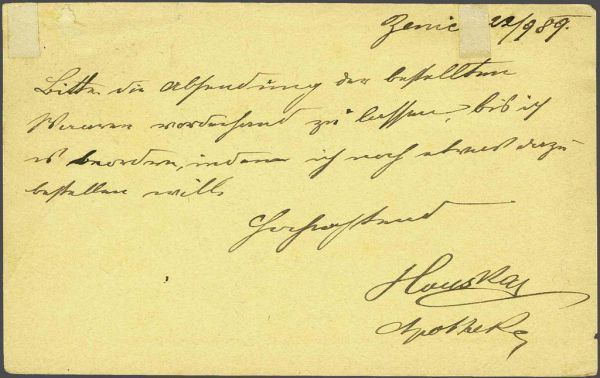 Zenic 22/9 89.
Bitte die Absendung der bestellten
Waaren vorderhand zu lassen, bis ich
es beordere, indem ich noch etwas dazu
bestellen will.
Hochachtend
Apotheke